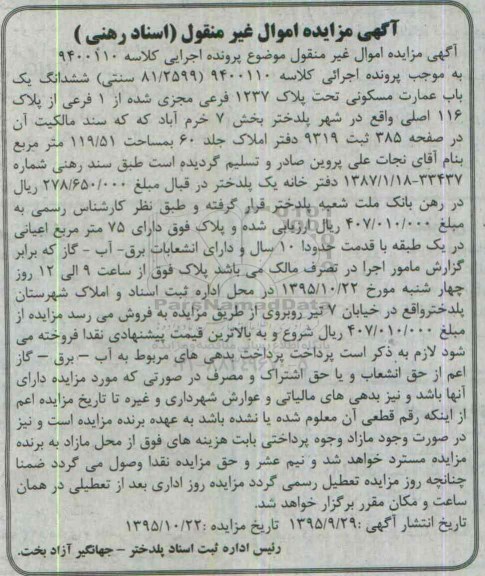 آگهی مزایده اموال غیر منقول (اسناد رهنی )
آگهی مزایده اموال غیر منقول موضوع پرونده اجرایی کلاسه ۹۴۰۰۱۱۰
به موجب پرونده اجرائی کلاسه ۹۴۰۰۱۱۰ (۸۱/۲۵۹۹ سنتی) ششدانگ یک
باب عمارت مسکونی تحت پلاک ۱۲۳۷ فرعی مجزی شده از ۱ فرعی از پلاک
۱۱۶ اصلی واقع در شهر پلدختر بخش ۷ خرم آباد که که سند مالکیت آن
در صفحه ۳۸۵ ثبت ۹۳۱۹ دفتر املاک جلد ۶۰ بمساحت ۱۱۹/۵۱ متر مربع
بنام آقای نجات علی پروین صادر و تسلیم گردیده است طبق سند رهنی شماره
۱۳۸۷/۱/۱۸-۳۳۴۳۷ دفتر خانه یک پلدختر در قبال مبلغ ۲۷۸/۶۵۰/۰۰۰ ریال
در رهن بانک ملت شعبه پلدختر قرار گرفته و طبق نظر کارشناس رسمی به
مبلغ ۴۰۷/۰۱۰/۰۰۰ ریال ارزیابی شده و پلاک فوق دارای ۷۵ متر مربع اعیانی
در یک طبقه با قدمت حدودا ۱۰ سال و دارای انشعابات برق- آب - گاز که برابر
گزارش مامور اجرا در تصرف مالک می باشد پلاک فوق از ساعت ۹ الی ۱۲ روز
چهار شنبه مورخ ۱۳۹۵/۱۰/۲۲ در محل اداره ثبت اسناد و املاک شهرستان
پلدخترواقع در خیابان ۷ تیر روبروی از طریق مزایده به فروش می رسد مزایده از
مبلغ ۴۰۷/۰۱۰/۰۰۰ ریال شروع و به بالاترین قیمت پیشنهادی نقدا فروخته می
شود لازم به ذکر است پرداخت پرداخت بدهی های مربوط به آب – برق – گاز
اعم از حق انشعاب و یا حق اشتراک و مصرف در صورتی که مورد مزایده دارای
آنها باشد و نیز بدهی های مالیاتی و عوارش شهرداری و غیره تا تاریخ مزایده اعم
از اینکه رقم قطعی آن معلوم شده یا نشده باشد به عهده برنده مزایده است و نیز
در صورت وجود مازاد وجوه پرداختی بابت هزینه های فوق از محل مازاد به برنده
مزایده مسترد خواهد شد و نیم عشر و حق مزایده نقدا وصول می گردد ضمنا
چنانچه روز مزایده تعطیل رسمی گردد مزایده روز اداری بعد از تعطیلی در همان
ساعت و مکان مقرر برگزار خواهد شد.
تاریخ انتشار آگهی :۱۳۹۵/۹/۲۹ تاریخ مزایده :۱۳۹۵/۱۰/۲۲
رئیس اداره ثبت اسناد پلدختر – جهانگیر آزاد بخت.